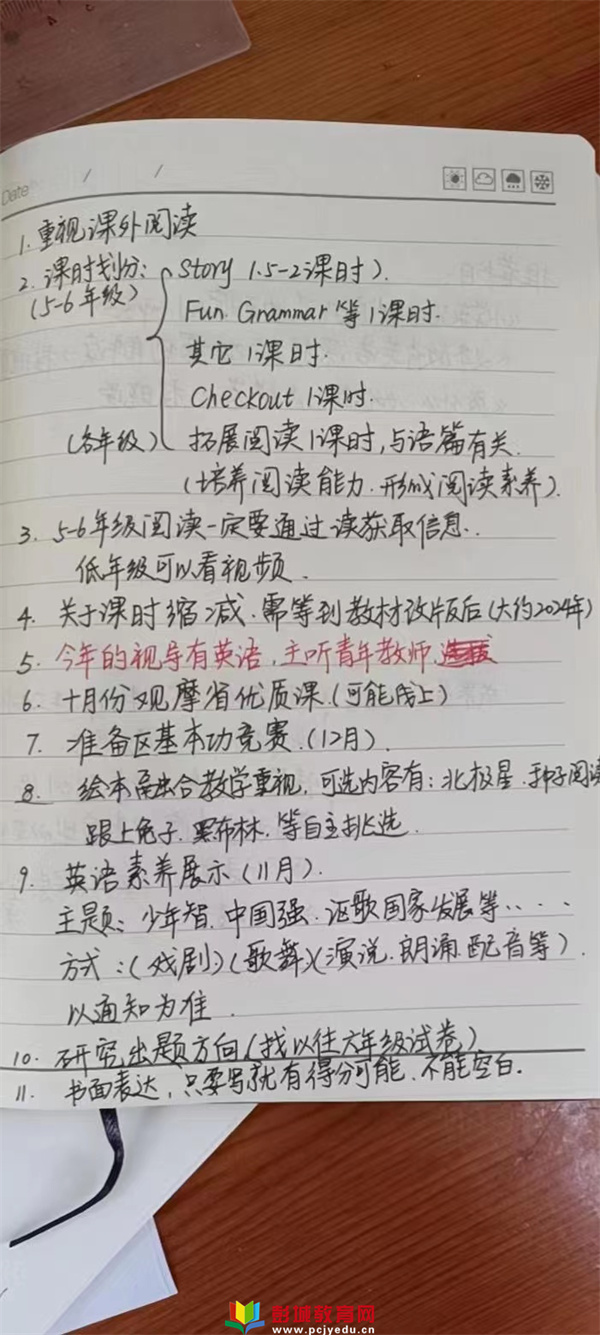 Date: / /
1. 重视课外阅读
2. 课时划分: Story 1.5-2课时).
(5-6年级) Fun. Grammar 等1课时.
其它 1课时.
Checkout 1课时.
(各年级) 拓展阅读1课时,与语篇有关.
(培养阅读能力.形成阅读素养).
3. 5-6年级阅读一定要通过读获取信息..
低年级可以看视频.
4. 关于课时缩减.需等到教材改版后(大约2024年)
5. 今年的视导有英语,主听青年教师.
6. 十月份观摩省优质课.(可能线上)
7. 准备区基本功竞赛.(12月).
8. 绘本融合教学重视,可选内容有:北极星.种子阅读
跟上兔子.黑布林.等自主挑选.
9. 英语素养展示(11月).
主题:少年智.中国强.讴歌国家发展等....
方式:(戏剧)(歌舞)(演说.朗诵.配音等).
以通知为准.
10. 研究出题方向(找以往六年级试卷)
11. 书面表达,只要写就有得分可能,不能空白.
彭城教育网
www.pcjyedu.cn